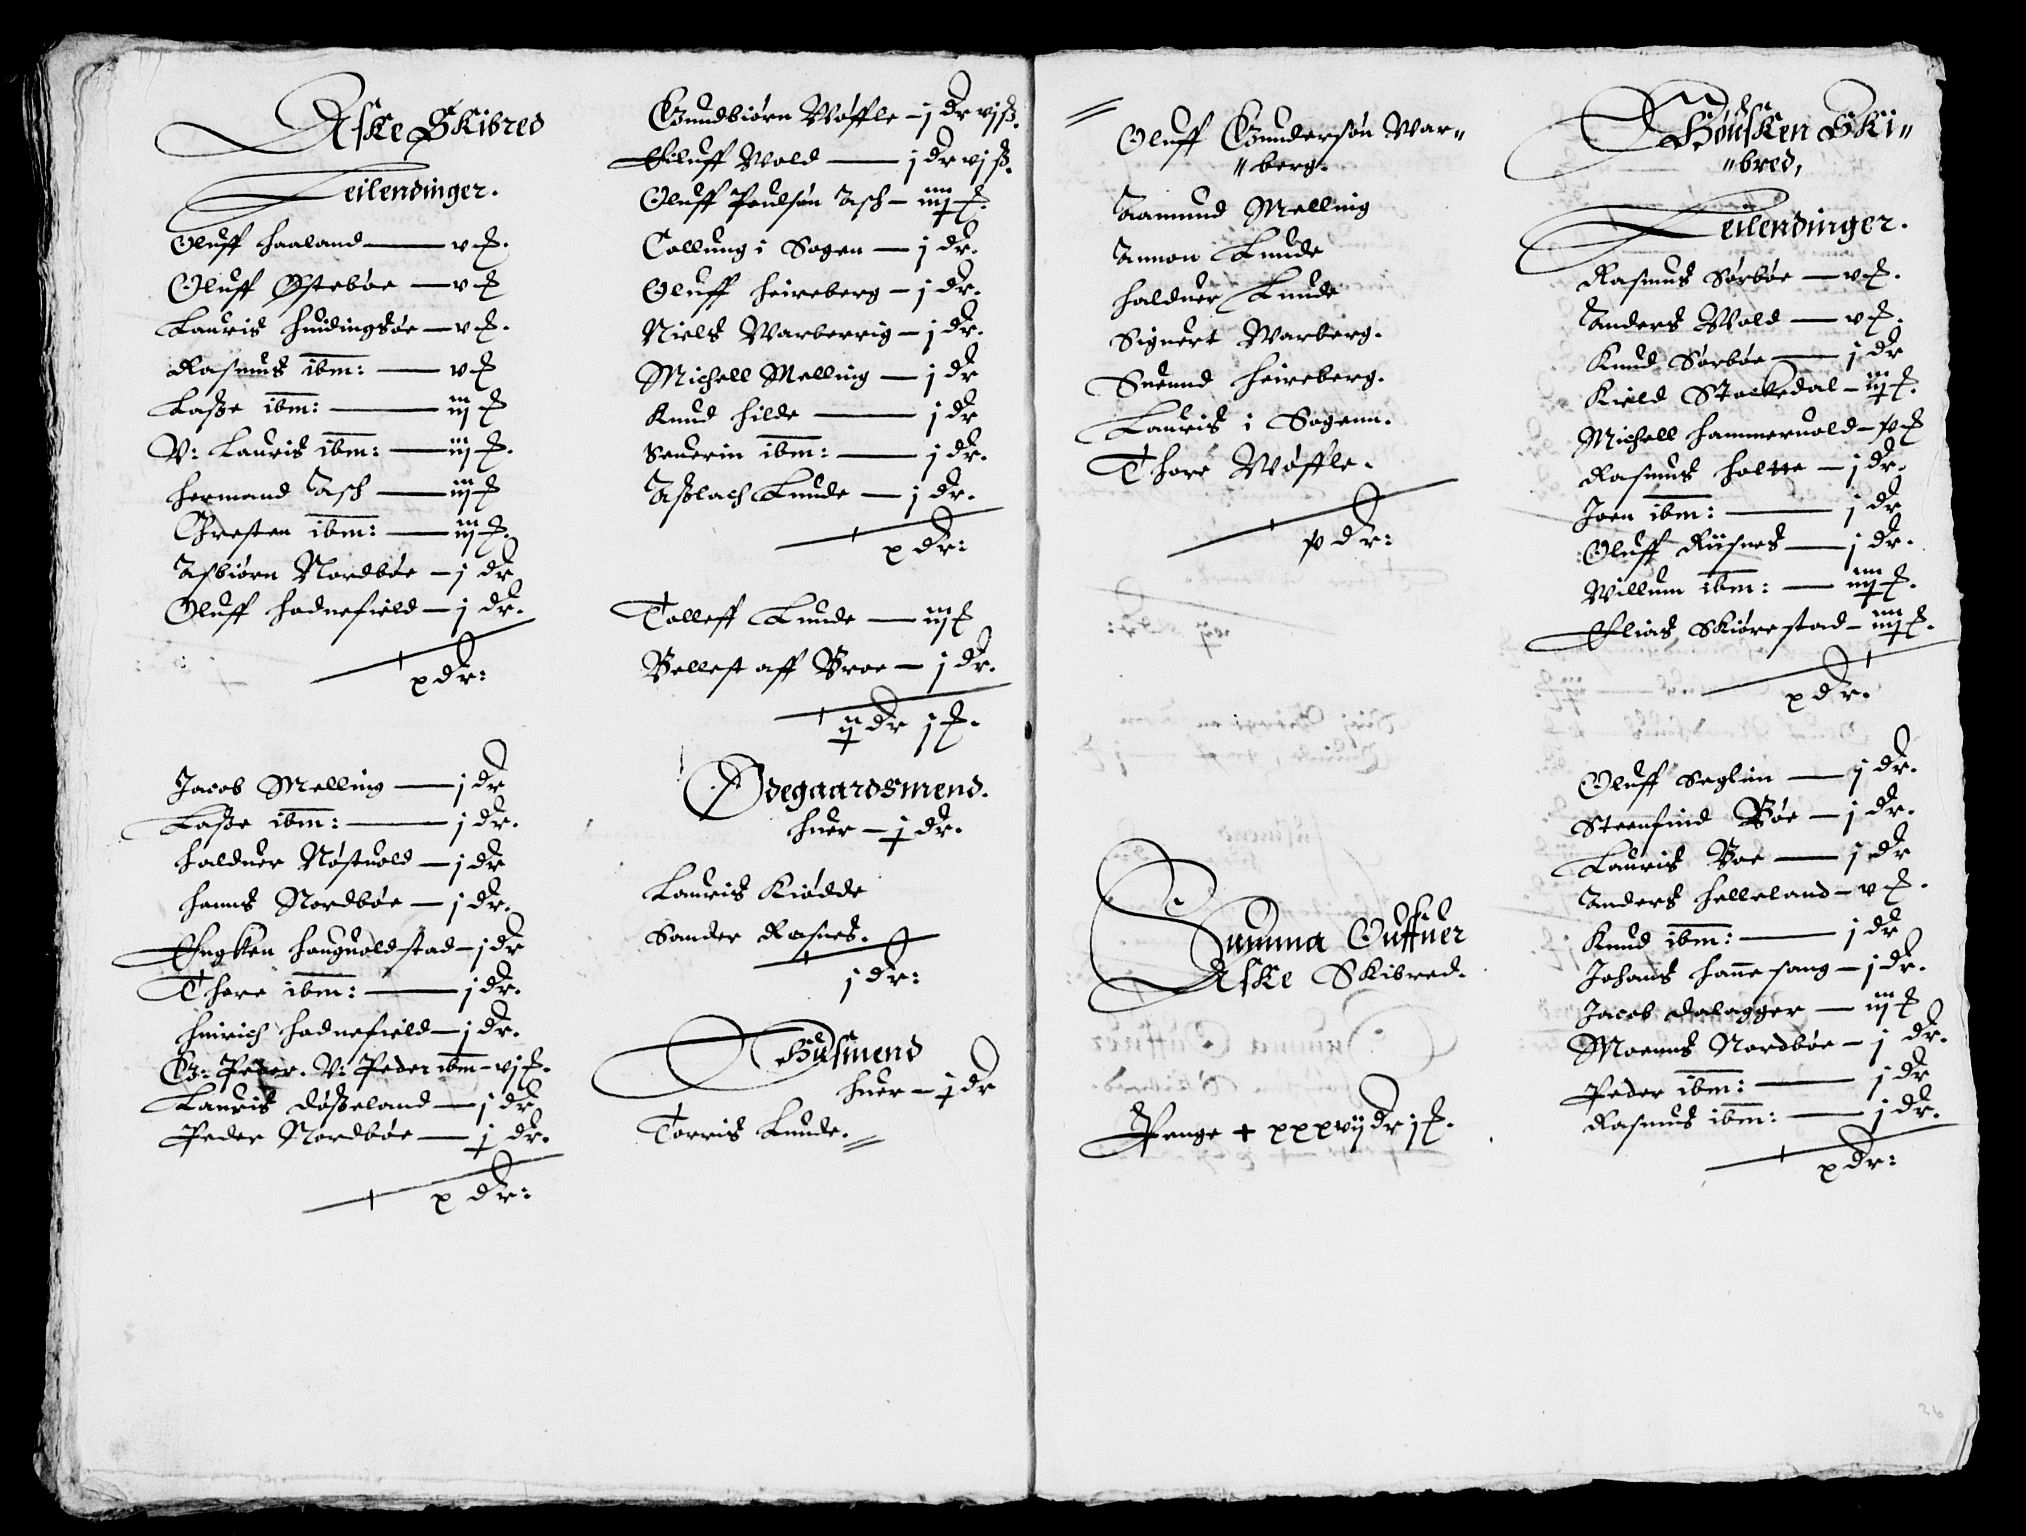 Aske Skibred
Leilendinger.
Oluff Haaland — v ₰.
Oluff Østebøe — v ₰
Lauris Huidingsøe — v ₰.
Rasmus ibm: — v ₰
Lasse ibm: — iij ₰
V: Lauris ibm: — iij ₰.
Hermand Ask — iij ₰
Christen ibm: — iij ₰.
Asbiørn Nordbøe — j dr
Oluff Hadnefield — j dr.
x dr:
Jacob Melling — j dr
Lasse ibm: — j dr.
Halduer Nøstuold — j dr
Hanns Nordbøe — j dr.
Engken Hauguoldstad — j dr
Thore ibm: — j dr.
Hinrich Hadnefield — j dr.
G: Peder. V: Peder ibm — vj ₰.
Lauris Døsseland — j dr
Peder Nordbøe — j dr.
x dr:
Gundbiørn Vøffle — j dr vj ß.
Eiluff Wold — j dr vj ß.
Oluff Poulsøn Ask — iiij ₰.
Collung i Sogen — j dr.
Oluff Heireberg — j dr.
Niels Warberrig — j dr.
Michell Melling — j dr
Knud Hilde — j dr
Seuerin ibm: — j dr.
Asslach Lunde — j dr.
x dr:
Tolleff Lunde — iij ₰
Bellest aff Broe — j dr.
ij dr j ₰.
Ødegaardsmend.
huer — j dr.
Lauris Kiødde
Sander Rasnes.
j dr:
Husmend
huer — j dr
Torris Lunde.
Oluff Gundersøn War-
berg.
Aamund Melling
Annon Lunde
Halduer Lunde
Signert Warberg.
Suennd Heireberg.
Lauris i Sogenn.
Thore Wøffle.
x dr:
Summa Outffuer
Aske Skibred.
Penge + xxxvij dr j ₰.
Housken Ski-
bred,
Leilendinger.
Rasmus Sørbøe — v ₰.
Anders Wold — v ₰.
Knud Sørbøe — j dr
Kield Stockedal — iij ₰.
Michell Hammeruold — x ₰
Rasmus Holtte — j dr.
Joen ibm: — j dr
Oluff Riisnes — j dr.
Willum ibm: — iiij ₰.
Elias Skiørestad — iiij ₰.
x dr.
Oluff Seglim — j dr.
Steenfind Bøe — j dr.
Lauris Boe — j dr
Anders Helleland — v ₰.
Knud ibm: — j dr
Johans Hannesang — j dr.
Jacob Dalagger — iij ₰
Moenns Nordbøe — j dr.
Peder ibm: — j dr
Rasmus ibm: — j dr.
x dr:
26